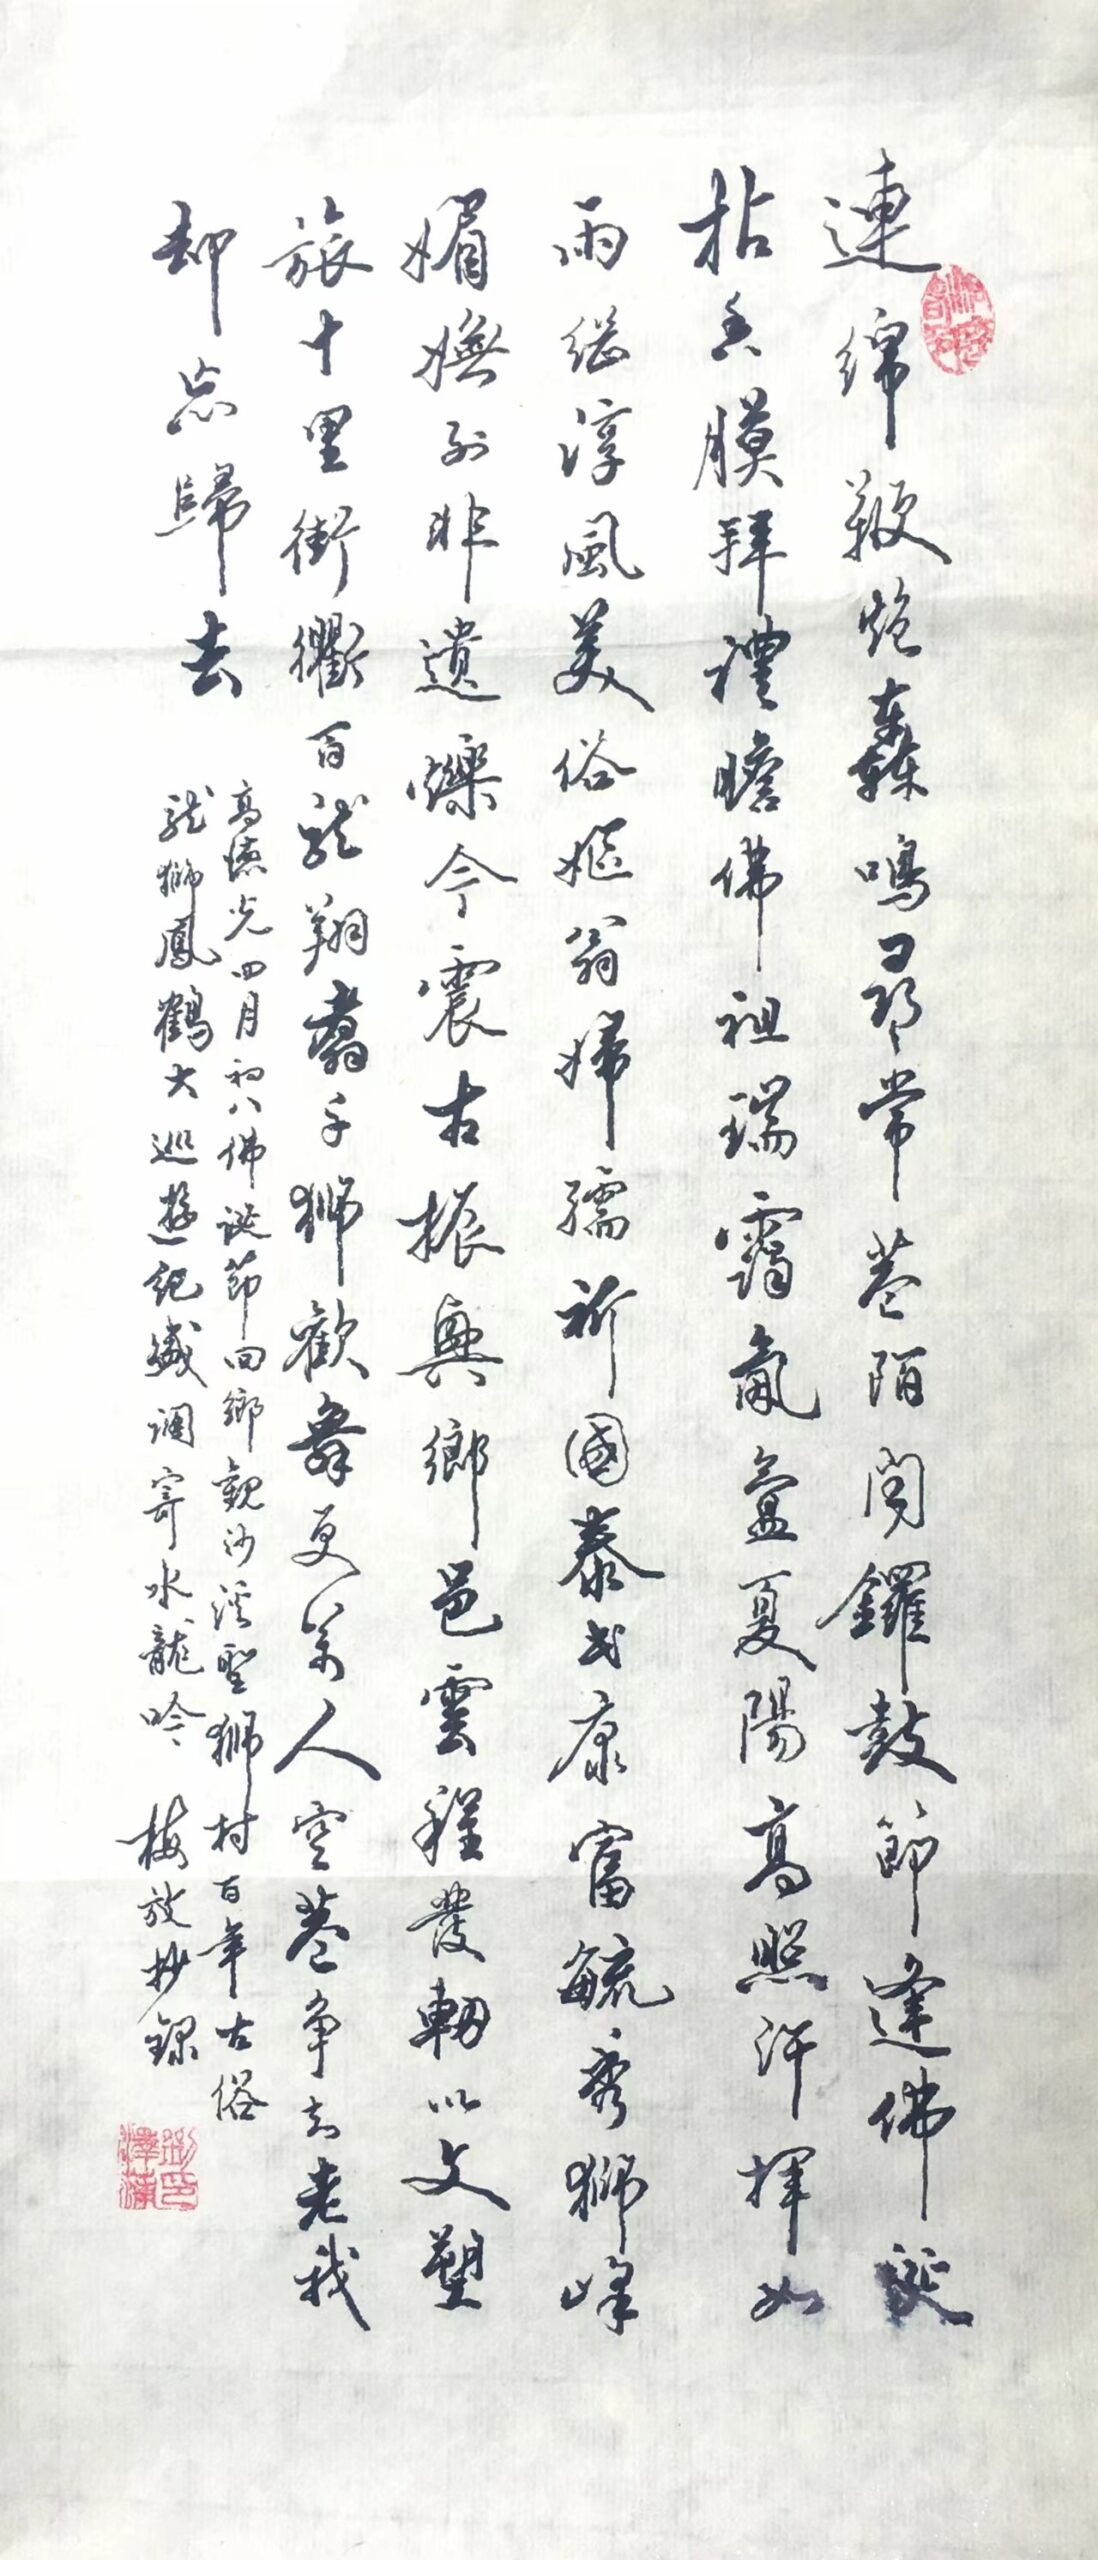 連綿鞭炮轟鳴尋常巷陌閙鑼鼓節逢佛誕
拈香膜拜禮瞻佛祖瑞靄氤氳夏陽高照汗揮如
雨繼淳風美俗嫗翁婦孺祈國泰民康富毓秀獅峰
媚嫵列非遺爍今震古振興鄉邑雲程發軔以文塑
旅十里街衢百龍翔翥千獅歡舞更萬人空巷争知老我
却忘歸去
高德光四月初八佛誕節回鄉觀沙溪聖獅村百年古俗
龍獅鳳鶴大巡遊紀盛調寄水龍吟 梅放抄錄